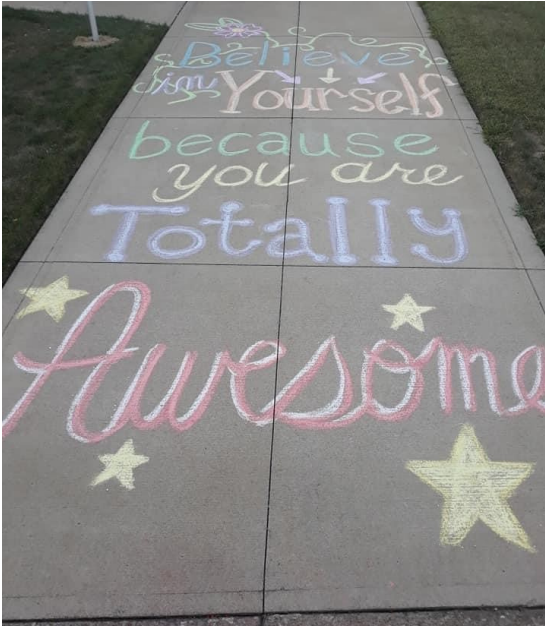 Believe
in Yourself
because
you are
Totally
Awesome